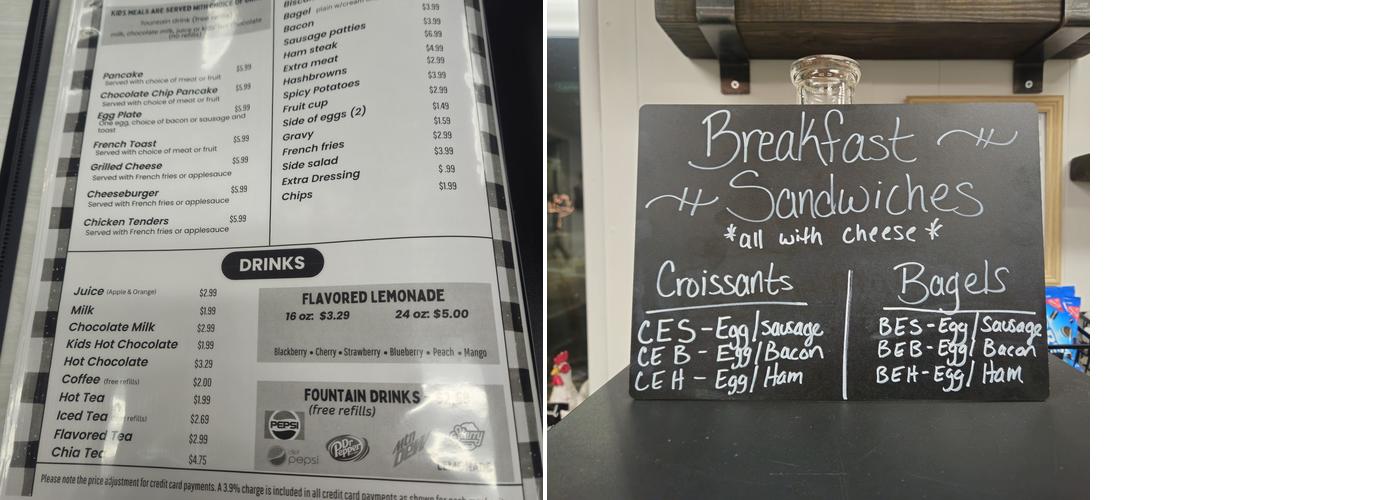 KIDS MEALS ARE SERVED WITH CHOICE OF
fountain drink (free refills)
milk, chocolate milk, juice or kids hot chocolate
(no refills)
Pancake $5.99
Served with choice of meat or fruit
Chocolate Chip Pancake $5.99
Served with choice of meat or fruit
Egg Plate $5.99
One egg, choice of bacon or sausage and
toast
French Toast $5.99
Served with choice of meat or fruit
Grilled Cheese $5.99
Served with French fries or applesauce
Cheeseburger $5.99
Served with French fries or applesauce
Chicken Tenders $5.99
Served with French fries or applesauce
Bagel plain w/cream
Bacon
Sausage patties
Ham steak
Extra meat
Hashbrowns
Spicy Potatoes
Fruit cup
Side of eggs (2)
Gravy
French fries
Side salad
Extra Dressing
Chips
$3.99
$3.99
$6.99
$4.99
$2.99
$3.99
$2.99
$1.49
$1.59
$2.99
$3.99
$ .99
$1.99
DRINKS
Juice (Apple & Orange) $2.99
Milk $1.99
Chocolate Milk $2.99
Kids Hot Chocolate $1.99
Hot Chocolate $3.29
Coffee (free refills) $2.00
Hot Tea $1.99
Iced Tea refills) $2.69
Flavored Tea $2.99
Chia Tea $4.75
FLAVORED LEMONADE
16 oz: $3.29 24 oz: $5.00
Blackberry • Cherry • Strawberry • Blueberry • Peach • Mango
FOUNTAIN DRINKS
(free refills)
PEPSI
Dr Pepper
MTN DEW
Starry
diet pepsi
Please note the price adjustment for credit card payments. A 3.9% charge is included in all credit card payments as shown for each
Breakfast
Sandwiches
*all with cheese*
Croissants
CES - Egg/Sausage
CEB - Egg/Bacon
CEH - Egg/Ham
Bagels
BES - Egg/Sausage
BEB - Egg/Bacon
BEH - Egg/Ham